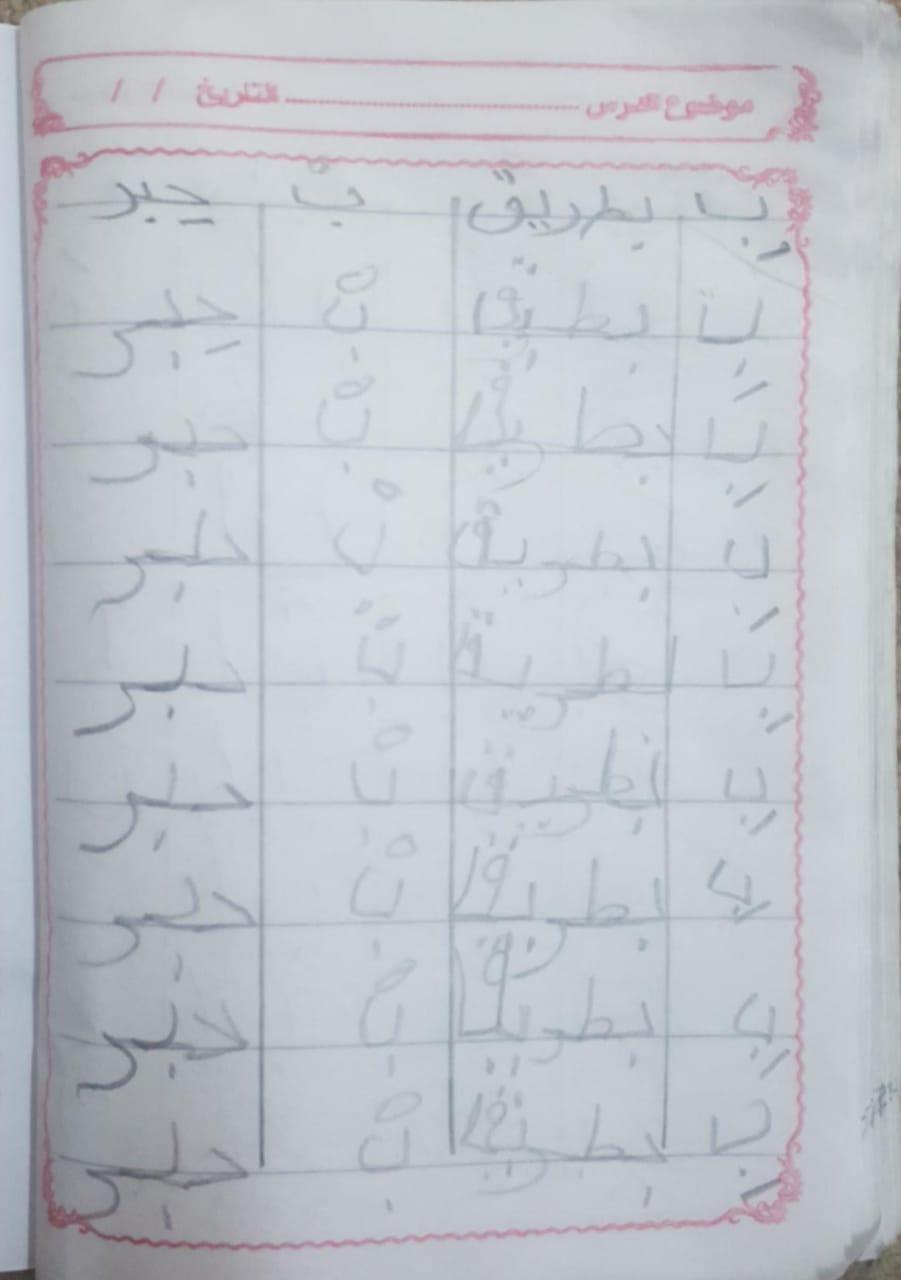 موضوع الدرس ........................ التاريخ / /
بِ بطريق بْ حِبر
بِ بطيق بْ حِبر
بِ بطريق بْ حبر
بِ بطريق بْ حبر
بِ بطريق بْ حبر
بِ بطريق بْ حبر
بِ بطريق بْ حبر
بِ بطريق بْ حبر
بِ بطريق بْ حبر